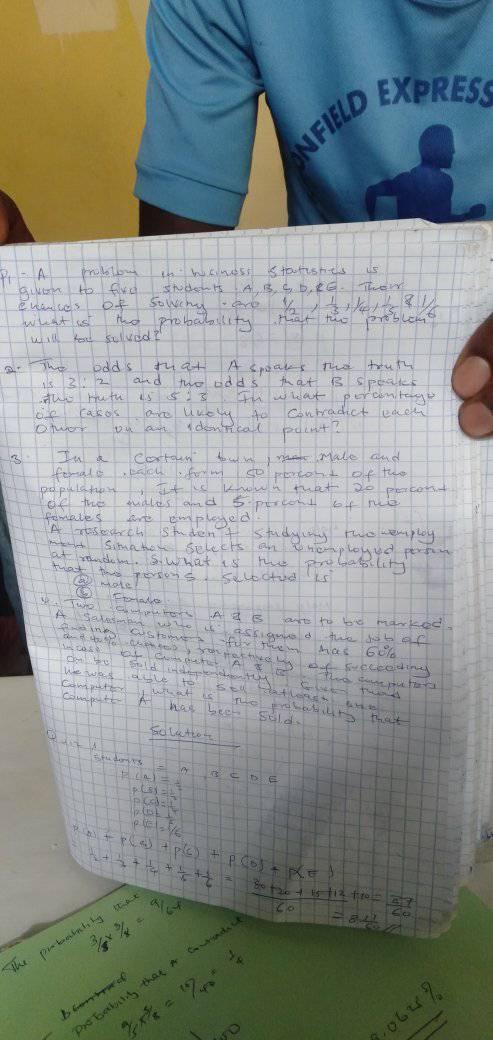 ONFIELD EXPRESS
P1 - A problem in business Statistics is
given to five students A, B, C, D, & E. Their
chances of Solving are 1/2, 1/3, 1/4, 1/5 & 1/6
what is the probability that the problem
will be solved?
2. The odds that A speaks the truth
is 3:2 and the odds that B speaks
the truth is 5:3. In what percentage
of cases are likely to contradict each
other on an identical point?
3. In a certain town, Male and
female each form 50 percent of the
population, It is known that 20 percent
of the males and 5 percent of the
females are employed.
A research student studying the employ
ment Situation Selects an unemployed person
at random. What is the probability
that the person selected is
(a) Male
(b) Female.
4. Two Computers A & B are to be marked.
A salesman who is assigned the job of
finding customers for them has 60%
respectively of succeeding
in case of Computer A & B. The two computers
can be sold independently. Given that
he was able to sell atleast one
Computer, what is the probability that
Computer A has been Sold.
Solution
Students = A, B C D E
P(A) = 1/2
P(B) = 1/3
P(C) = 1/4
P(D) = 1/5
P(E) = 1/6
P(A) + P(B) + P(C) + P(D) + P(E)
1/2 + 1/3 + 1/4 + 1/5 + 1/6 = 30+20+15+12+10 = 87
60 60
The probability that
3/5 x 3/8 = 9/40
probability that A contradict
= 1/4
.0625%